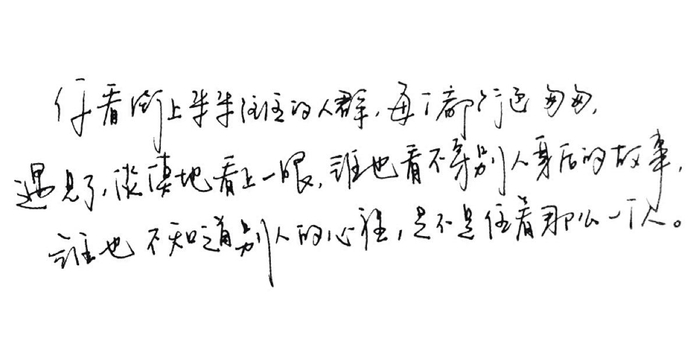 仔看街上来来往往的人群,每个都行色匆匆,
遇见了,淡漠地看上一眼,谁也看不穿别人身后的故事,
谁也不知道别人的心里,是不是住着那么一个人。